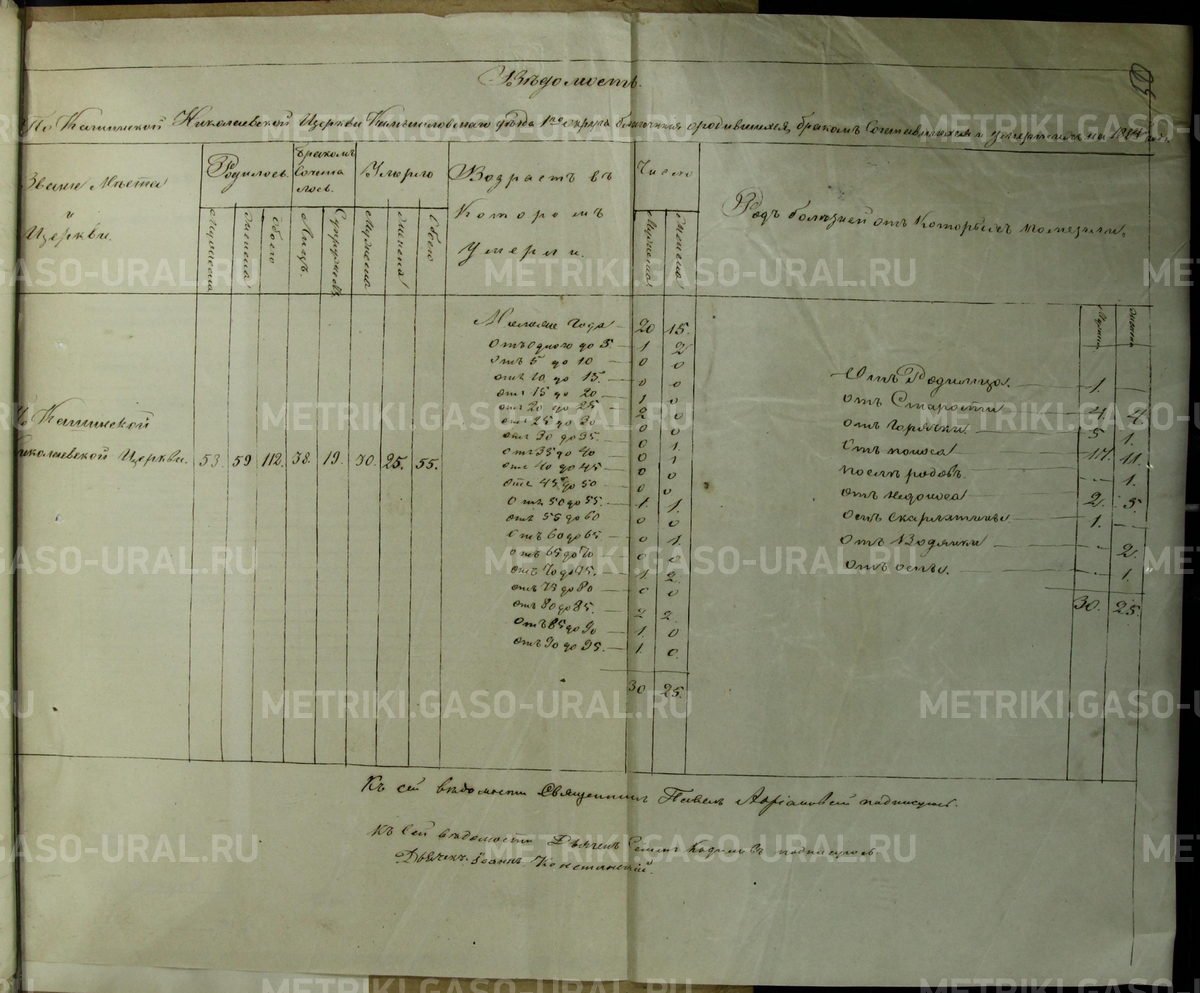 50
Вѣдомость.
По Кашинской Николаевской Церкви Камышловскаго уѣзда 1го округа о родившихся, бракомъ Сочетавшихся и умершихъ на
Званіе Мѣста и Церкви.
Родилось
Бракомъ Сочеталось.
Умерло
Возрастъ въ Которомъ Умерли.
Число
Родъ болѣзней отъ Которыхъ
Мужеска
Женска
Обоего
Лицъ
Супружествъ
Мужеска
Женска
Обоего
Мужеска
Женска
Кашинской
Николаевской Церкви. 53. 59 112. 38. 19. 30. 25. 55.
Менѣе Года 20 15.
Отъ одного до 5 1 2
Отъ 5 до 10 0 0
Отъ 10 до 15. 0 0
Отъ 15 до 20 1 0
Отъ 20 до 25 2 0
Отъ 25 до 30 0 0
Отъ 30 до 35. 0 1.
Отъ 35 до 40 0 1
Отъ 40 до 45 0 0
Отъ 45 до 50 0 0
Отъ 50 до 55. 1 1.
Отъ 55 до 60 0 0
Отъ 60 до 65 0 1
Отъ 65 до 70 0 0
Отъ 70 до 75. 1 2
Отъ 75 до 80 0 0
Отъ 80 до 85. 2 2.
Отъ 85 до 90 1. 0
Отъ 90 до 95. 1. 0.
30 25.
Отъ Родимца 1. —
отъ Старости 4. 4.
отъ Горячки 5 1.
отъ поноса 17. 11.
послѣ родовъ — 1.
отъ недоноса 2. 5.
отъ Скарлатины 1. —
отъ Водянки — 2.
отъ оспы. — 1.
30. 25.
Къ сей вѣдомости Священникъ Павелъ подписуюсь.
Къ сей вѣдомости
Дьячекъ Іоаннъ
METRIKI.GASO-URAL.RU